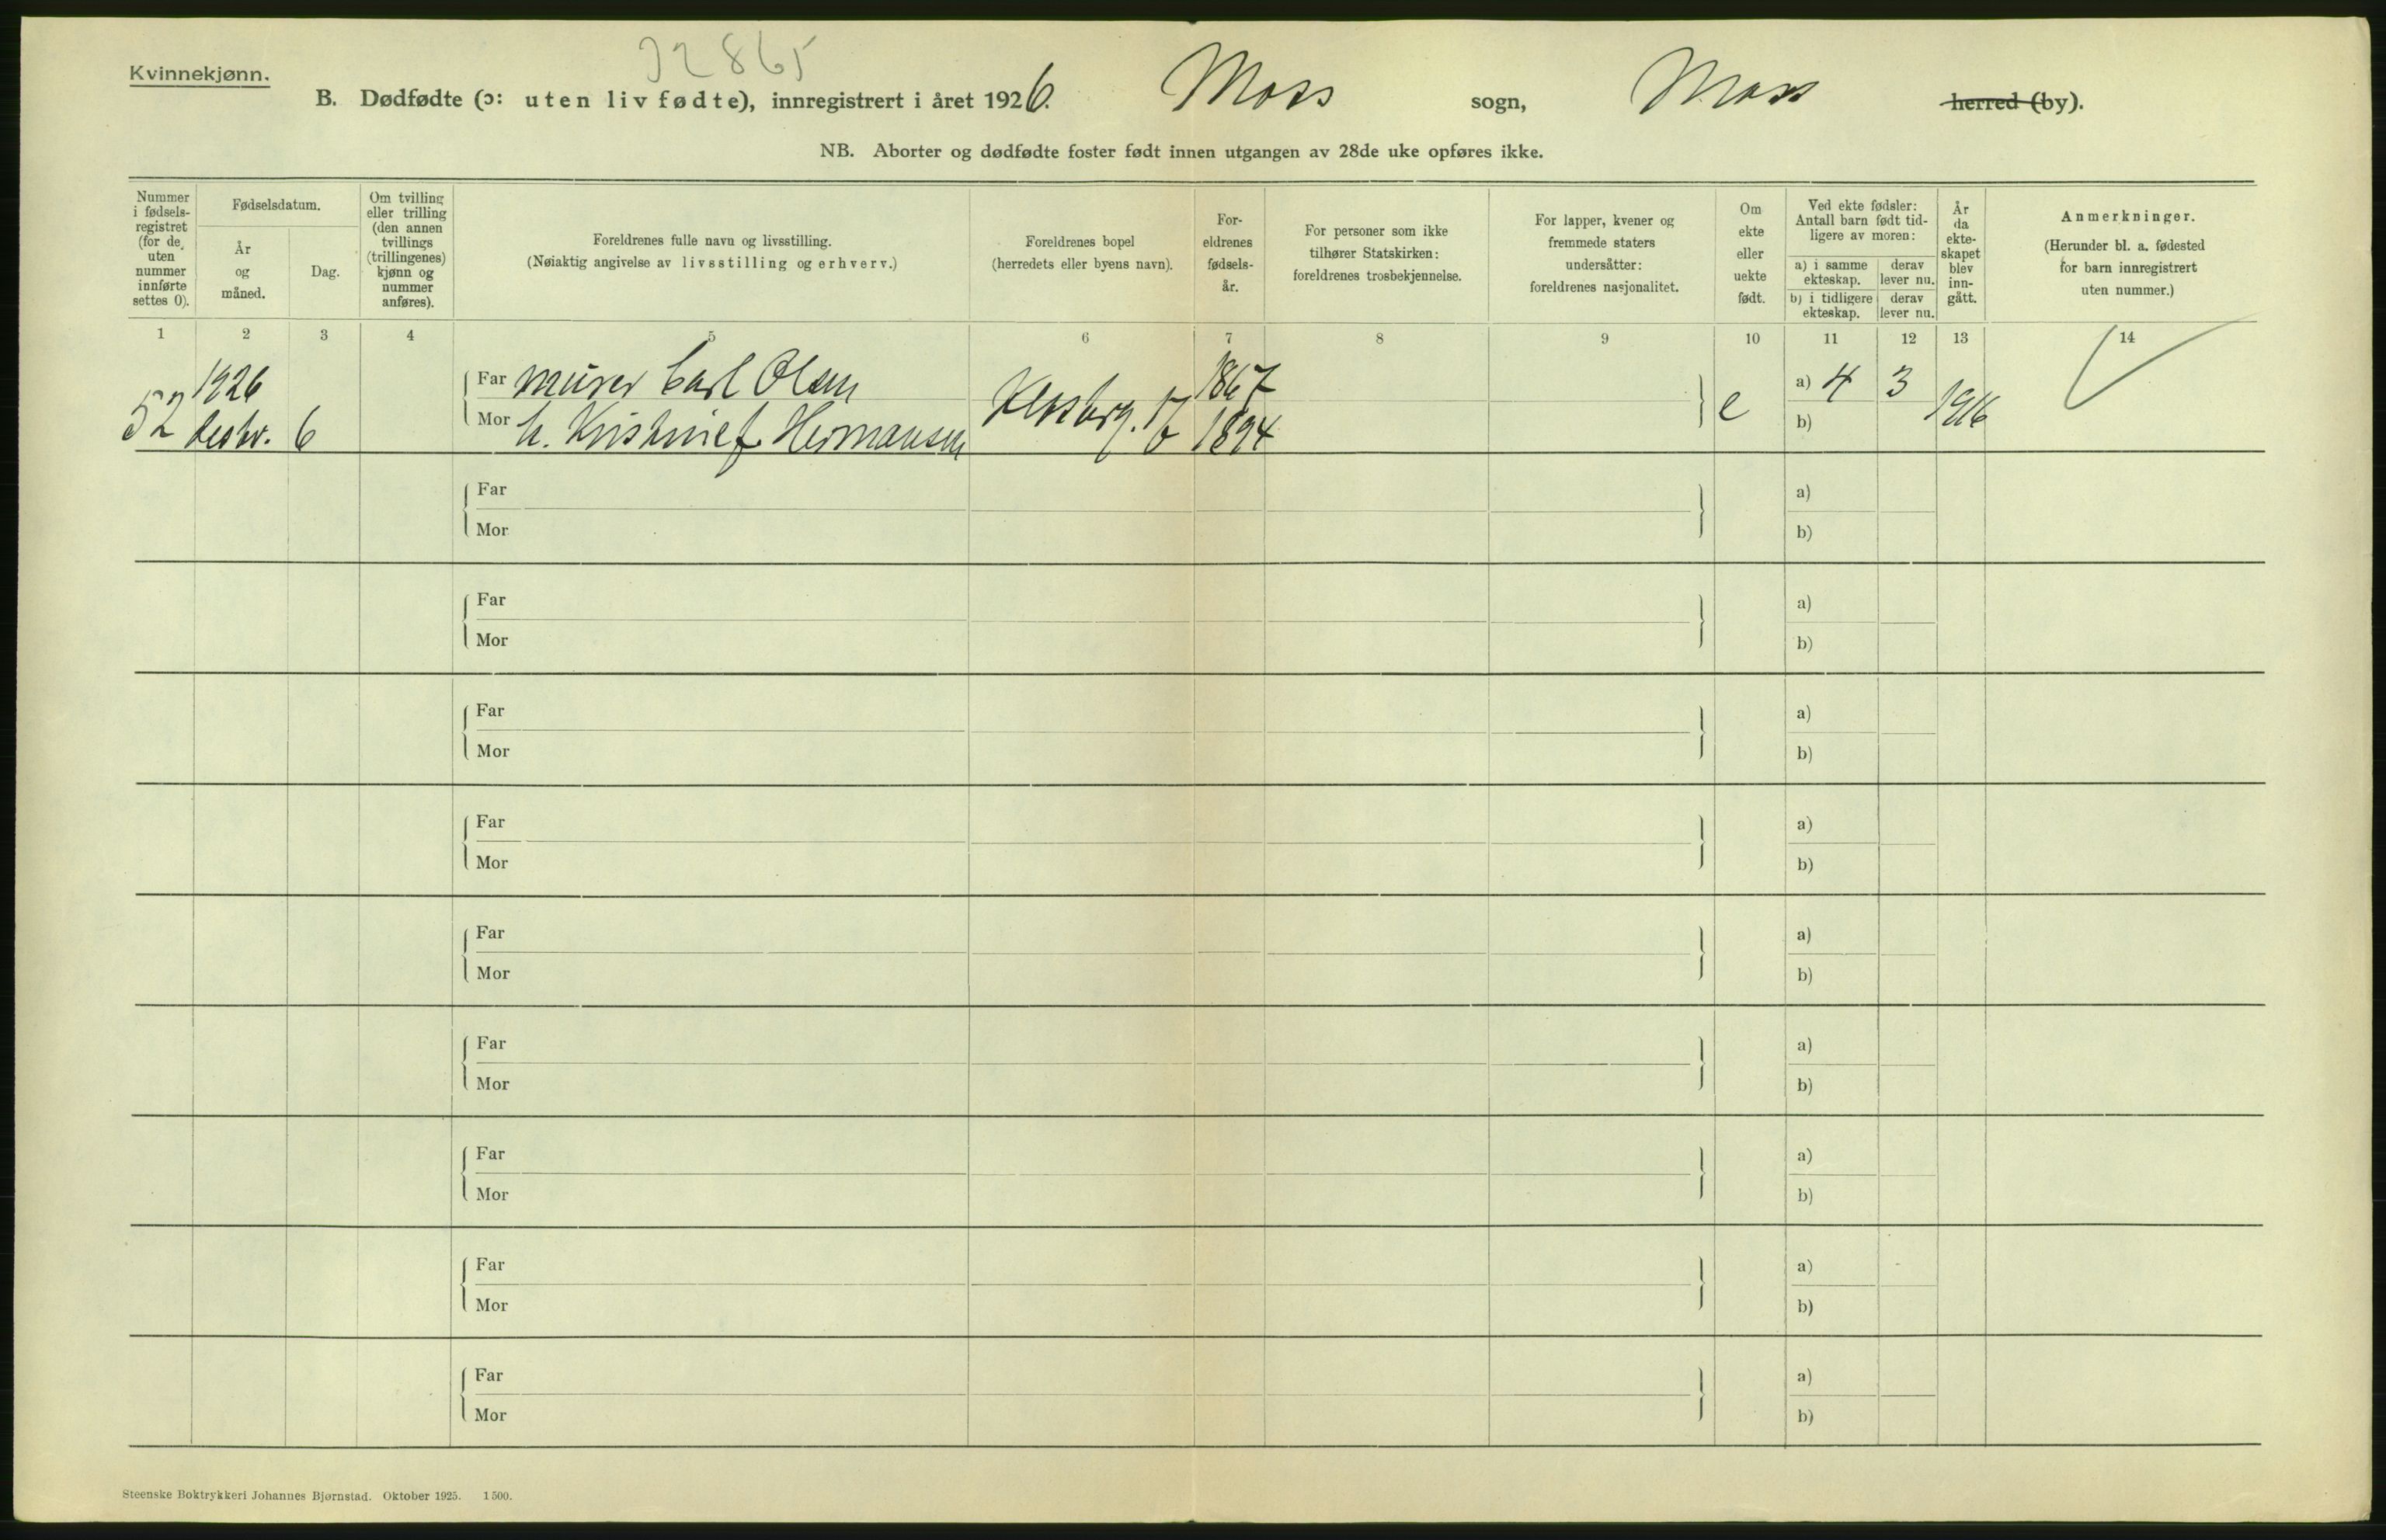 32865
Kvinnekjønn.
B. Dødfødte (ɔ: uten liv fødte), innregistrert i året 1926. Moss sogn, Moss herred (by).
NB. Aborter og dødfødte foster født innen utgangen av 28de uke opføres ikke.
Nummer i fødsels-registret (for de uten nummer innførte settes 0).
Fødselsdatum.
År og måned.
Dag.
Om tvilling eller trilling (den annen tvillings (trillingenes) kjønn og nummer anføres).
Foreldrenes fulle navn og livsstilling.
(Nøiaktig angivelse av livsstilling og erhverv.)
Foreldrenes bopel
(herredets eller byens navn).
For-eldrenes fødsels-år.
For personer som ikke tilhører Statskirken: foreldrenes trosbekjennelse.
For lapper, kvener og fremmede staters undersåtter: foreldrenes nasjonalitet.
Om ekte eller uekte født.
Ved ekte fødsler: Antall barn født tid-ligere av moren:
a) i samme ekteskap.
derav lever nu.
b) i tidligere ekteskap.
derav lever nu.
År da ekte-skapet blev inn-gått.
Anmerkninger.
(Herunder bl. a. fødested for barn innregistrert uten nummer.)
1 2 3 4 5 6 7 8 9 10 11 12 13 14
1926 Far murer Carl Olsen 1867 a) 4 3
52 6 Mor h. Kristine f. Hermansen 1894 e b) 1916
Far a)
Mor b)
Far a)
Mor b)
Far a)
Mor b)
Far a)
Mor b)
Far a)
Mor b)
Far a)
Mor b)
Far a)
Mor b)
Far a)
Mor b)
Far a)
Mor b)
Steenske Boktrykkeri Johannes Bjørnstad. Oktober 1925. 1500.